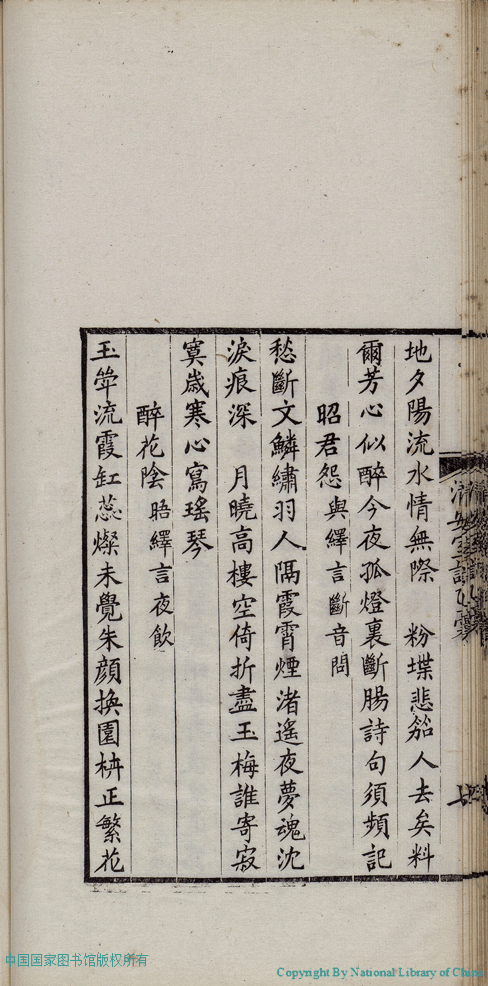 地夕陽流水情無際　粉堞悲笳人去矣料
爾芳心似醉今夜孤燈裏斷腸詩句須頻記
昭君怨與繹言斷音問
愁斷文鱗繡羽人隔霞霄煙渚遙夜夢魂沈
淚痕深　月曉高樓空倚折盡玉梅誰寄寂
寞歲寒心寫瑤琴
醉花陰晤繹言夜飲
玉斝流霞缸蕊燦未覺朱顏換園林正繁花
中国国家图书馆版权所有
Copyright By National Library of China